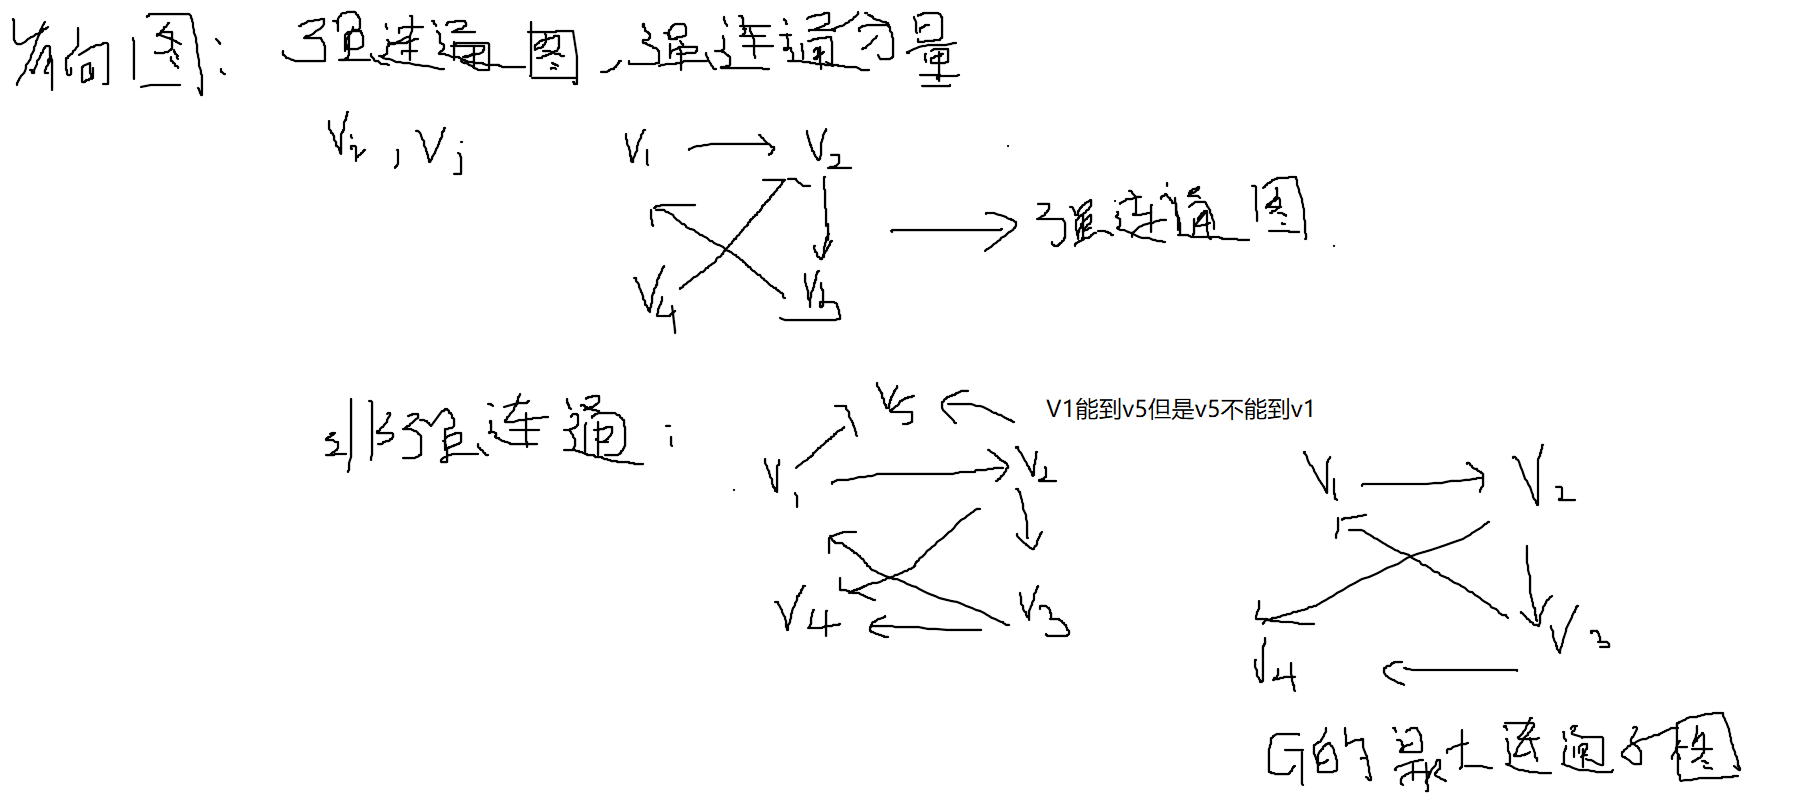 有向图：强连通图，强连通分量
Vi，Vj
V1 V2
强连通图
V4 V3
非强连通：
V5
V1能到v5但是v5不能到v1
V1 V2
V4 V3
V1 V2
V4 V3
G的最大连通子图